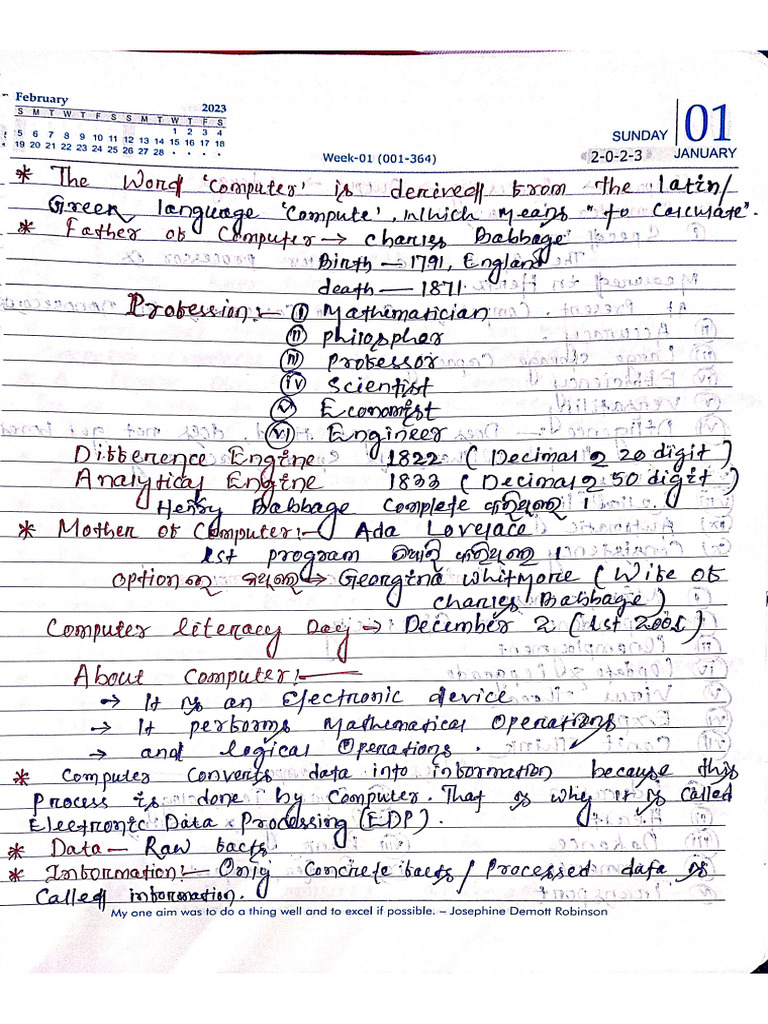 February 2023
S M T W T F S S M T W T F S
1 2 3 4
5 6 7 8 9 10 11 12 13 14 15 16 17 18
19 20 21 22 23 24 25 26 27 28
Week-01 (001-364)
SUNDAY 01
2-0-2-3 JANUARY
* The Word 'Computer' is derived from the latin/
Green language 'Compute', Which means "to Calculate".
* Father of Computer → Charles Babbage
Birth — 1791, England
death — 1871.
Profession:- (i) Mathematician
(ii) Philospher
(iii) Professor
(iv) Scientist
(v) Economist
(vi) Engineer
Difference Engine 1822 (Decimal ର 20 digit)
Analytical Engine 1833 (Decimal ର 50 digit)
Henry Babbage Complete କରିଥିଲେ ।
* Mother of Computer:- Ada Lovelace
1st program କରିଥିଲେ ।
Option ରେ → Georgina Whitmore (Wife of
Charles Babbage)
Computer literacy Day → December 2 (1st 2001)
About Computer:-
→ It is an Electronic device
→ It performs Mathematical Operations
→ and logical Operations.
* Computer Converts data into information because this
Process is done by Computer. That is why it is Called
Electronic Data Processing (EDP).
* Data — Raw facts
* Information:- Only Concrete facts / Processed data is
Called information.
My one aim was to do a thing well and to excel if possible. – Josephine Demott Robinson